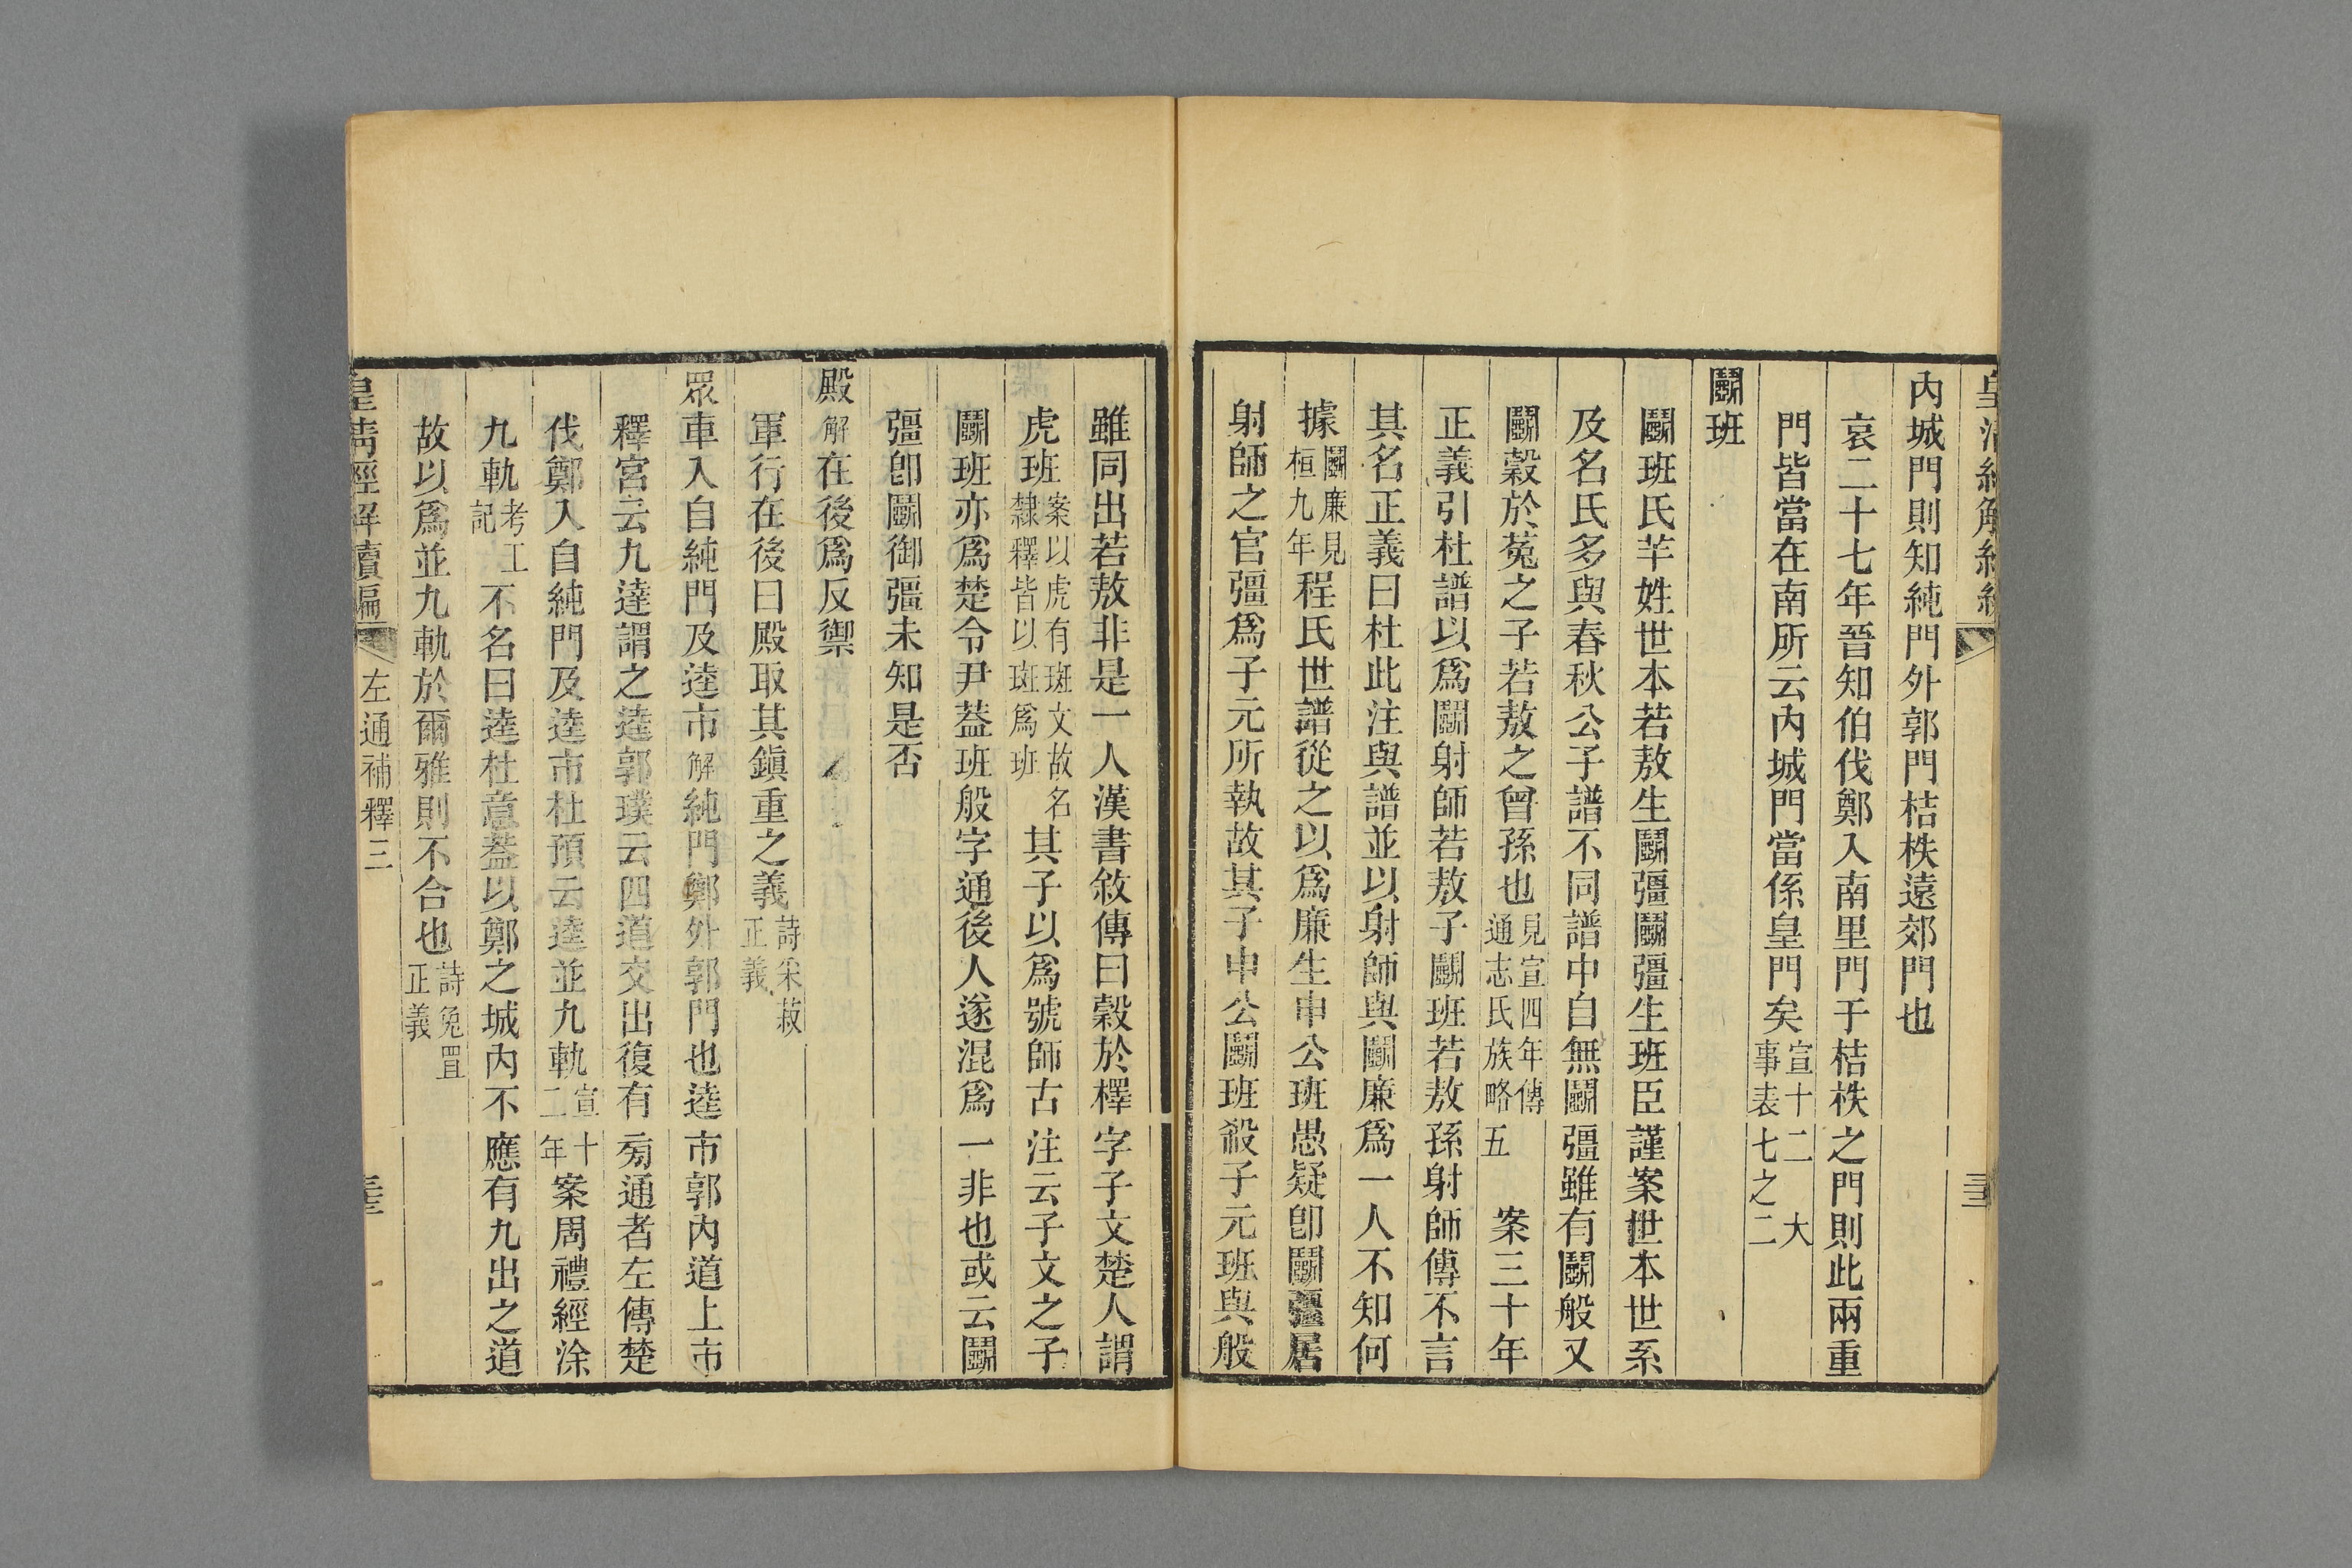 內城門則知純門外郭門桔柣遠郊門也
哀二十七年晉知伯伐鄭入南里門于桔柣之門則此兩重
門皆當在南所云內城門當係皇門矣宣十二大事表七之二
鬭班
鬭班氏羋姓世本若敖生鬭彊鬭彊生班臣謹案世本世系
及名氏多與春秋公子譜不同譜中自無鬭彊雖有鬭般又
鬭穀於菟之子若敖之曾孫也見宣四年傳通志氏族略五案三十年
正義引杜譜以爲鬭射師若敖子鬭班若敖孫射師傳不言
其名正義曰杜此注與譜並以射師與鬭廉爲一人不知何
據鬭廉見桓九年程氏世譜從之以爲廉生申公班愚疑卽鬭彊居
射師之官彊爲子元所執故其子申公鬭班殺子元班與般
雖同出若敖非是一人漢書敘傳曰穀於檡字子文楚人謂
虎班案以虎有斑文故名隸釋皆以斑爲班其子以爲號師古注云子文之子
鬭班亦爲楚令尹葢班般字通後人遂混爲一非也或云鬭
彊卽鬭御彊未知是否
殿解在後爲反禦
軍行在後曰殿取其鎭重之義詩采菽正義
眾車入自純門及逵市解純門鄭外郭門也逵市郭內道上市
釋宮云九達謂之逵郭璞云四道交出復有旁通者左傳楚
伐鄭入自純門及逵市杜預云逵並九軌宣十二年案周禮經涂
九軌考工記不名曰逵杜意葢以鄭之城內不應有九出之道
故以爲並九軌於爾雅則不合也詩兔罝正義
皇清經解續編
左通補釋三